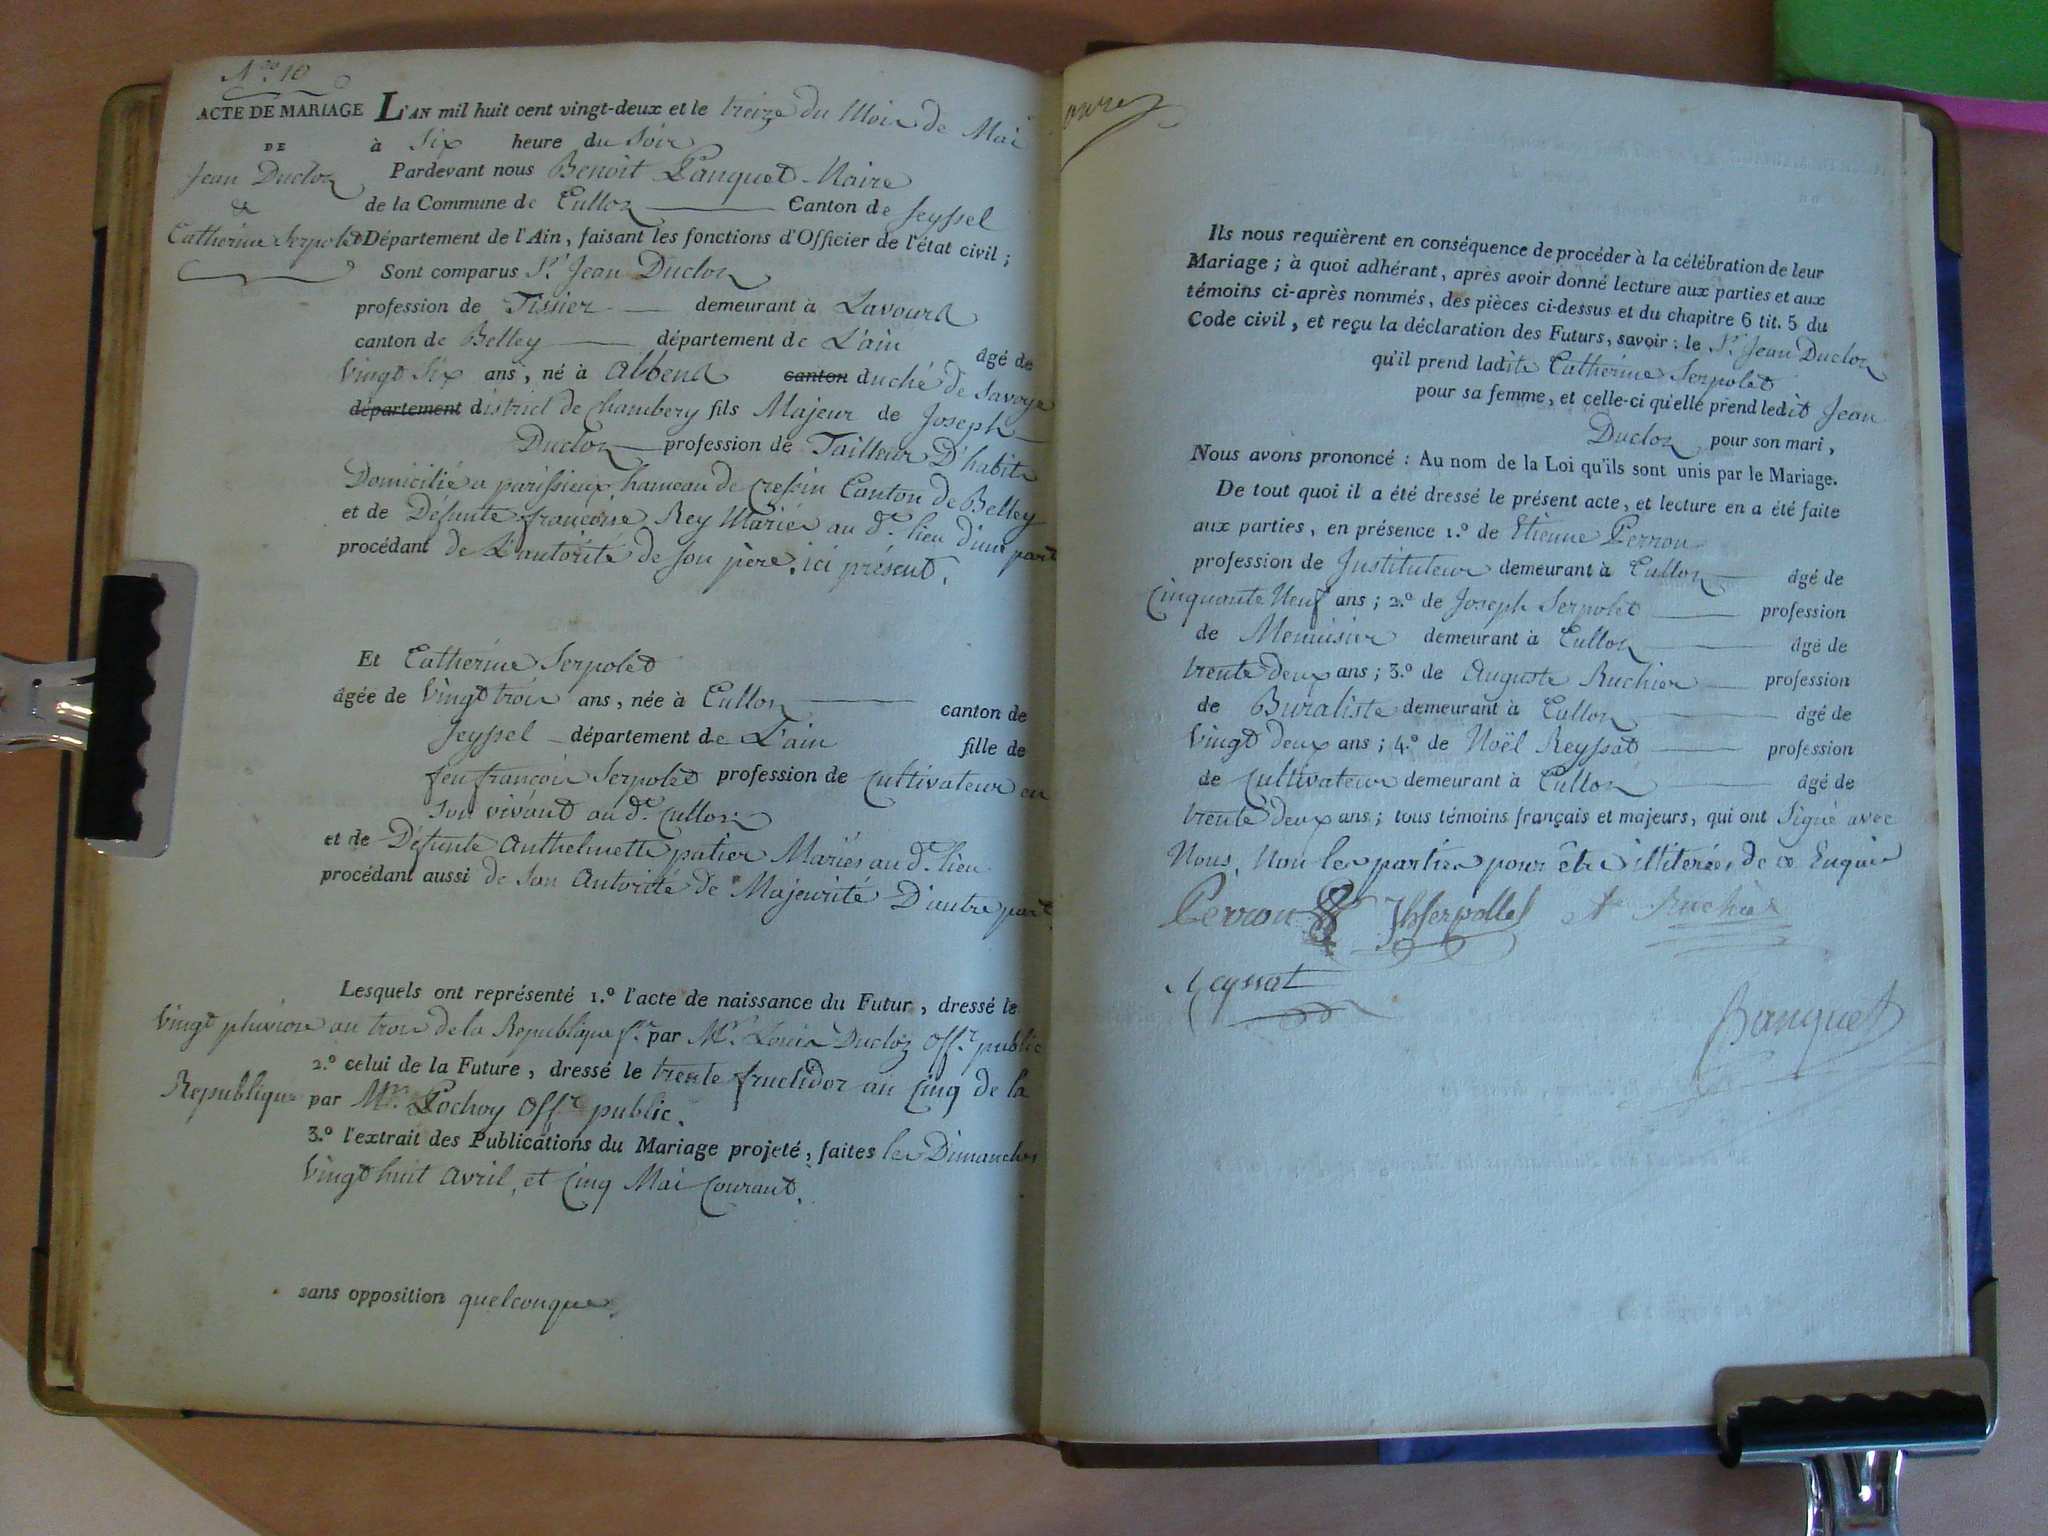 N.ro 10
ACTE DE MARIAGE
DE
Jean Ducloz
&
Catherine Serpolet
L'AN mil huit cent vingt-deux et le treize du Mois de Mai
à Six heure du Soir
Pardevant nous Benoit Panquet Maire
de la Commune de Culloz Canton de Seyssel
Département de l'Ain, faisant les fonctions d'Officier de l'état civil;
Sont comparus Sr. Jean Ducloz
profession de Tissier demeurant à Lavourd
canton de Belley département de L'ain âgé de
Vingt Six ans, né à Abbend canton duché de Savoye
département district de Chambery fils Majeur de Joseph
Ducloz profession de Tailleur D'habits
Domicilié a parissieux, hameau de Cressin Canton de Belley
et de Défunte françoise Rey Mariés au dt. lieu d'une part
procédant de L'autorité de son père, ici présent.
Et Catherine Serpolet
âgée de Vingt trois ans, née à Culloz canton de
Seyssel département de L'ain fille de
feu françois Serpolet profession de Cultivateur en
Son vivant au dt. Culloz
et de Défunte Anthelmette patier Mariés au dt. lieu
procédant aussi de Son Autorité de Majeurité D'autre part
Lesquels ont représenté 1.º l'acte de naissance du Futur, dressé le
Vingt pluviose an trois de la Republique fse. par Mr. Louis Ducloz Offr. public
2.º celui de la Future, dressé le trente fructidor an Cinq de la
Republique par Mr. Pochoy Offr. public.
3.º l'extrait des Publications du Mariage projeté, faites les Dimanches
Vingt huit Avril, et Cinq Mai Courant.
sans opposition quelconque.
Ils nous requièrent en conséquence de procéder à la célébration de leur
Mariage; à quoi adhérant, après avoir donné lecture aux parties et aux
témoins ci-après nommés, des pièces ci-dessus et du chapitre 6 tit. 5 du
Code civil, et reçu la déclaration des Futurs, savoir: le Sr. Jean Ducloz
qu'il prend ladite Catherine Serpolet
pour sa femme, et celle-ci qu'elle prend ledit Jean
Ducloz pour son mari,
Nous avons prononcé: Au nom de la Loi qu'ils sont unis par le Mariage.
De tout quoi il a été dressé le présent acte, et lecture en a été faite
aux parties, en présence 1.º de Etienne Perron
profession de Instituteur demeurant à Culloz âgé de
Cinquante Neuf ans; 2.º de Joseph Serpolet profession
de Menuisier demeurant à Culloz âgé de
trente deux ans; 3.º de Auguste Ruchier profession
de Buraliste demeurant à Culloz âgé de
Vingt deux ans; 4.º de Noël Reyssat profession
de Cultivateur demeurant à Culloz âgé de
trente deux ans; tous témoins français et majeurs, qui ont Signé avec
Nous, Non les parties pour être illiterées, de ce Enquis
Perron Jh Serpollet Ate Ruchier
Reyssat
Panquet